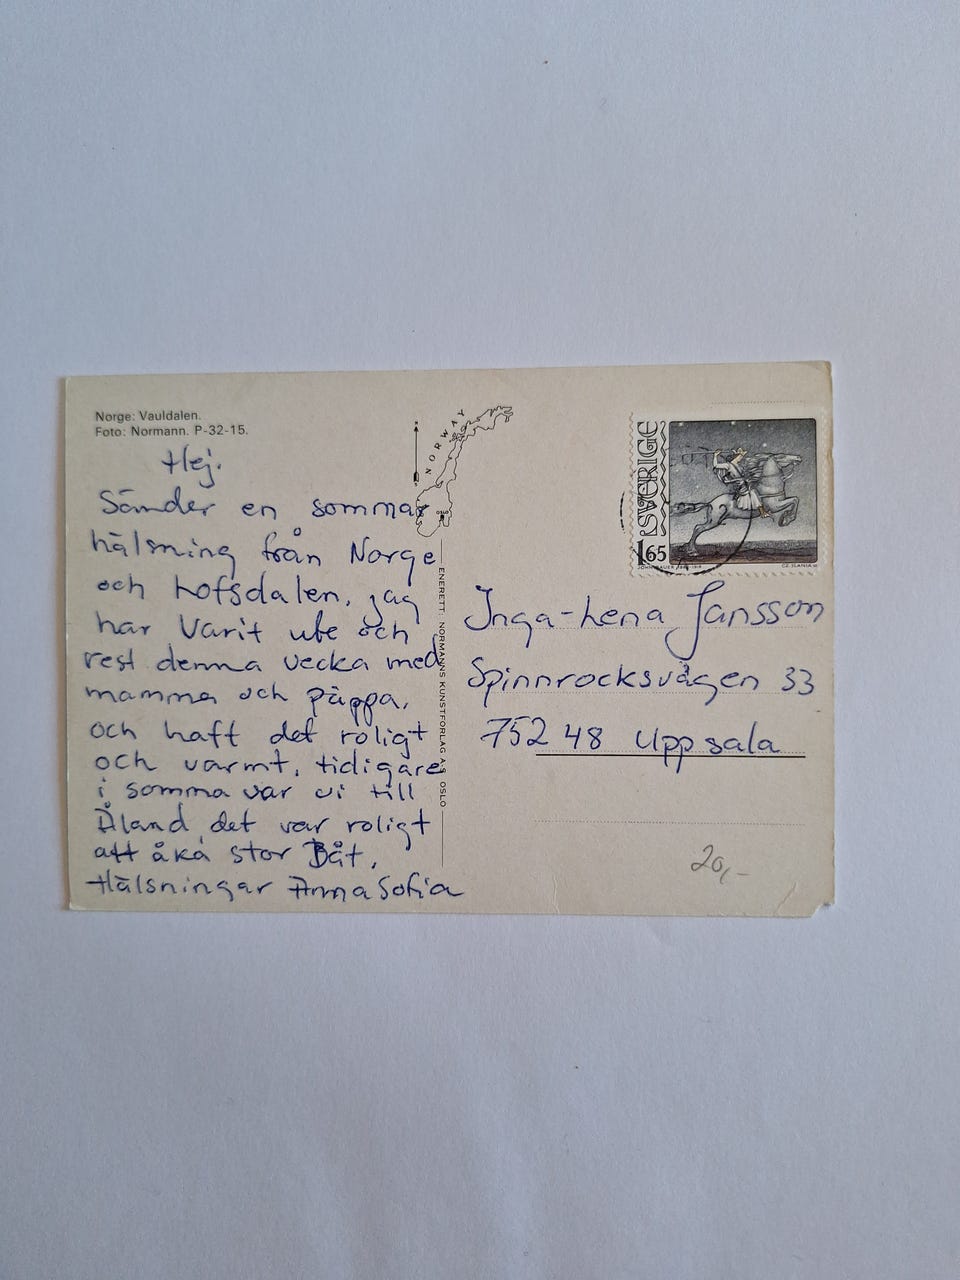 Norge: Vauldalen.
Foto: Normann. P-32-15.
Hej.
Sänder en sommar
hälsning från Norge
och Lofsdalen, jag
har Varit ute och
rest denna vecka med
mamma och päppa,
och haft det roligt
och varmt, tidigare
i somma var vi till
Åland, det var roligt
att åka stor Båt,
Hälsningar AnnaSofia
NORWAY
OSLO
ENERETT: NORMANNS KUNSTFORLAG A.S OSLO
SVERIGE
1.65
JOHN BAUER 1882-1918
CZ. SLANIA SC
Inga-Lena Jansson
Spinnrocksvägen 33
752 48 Uppsala
20,-